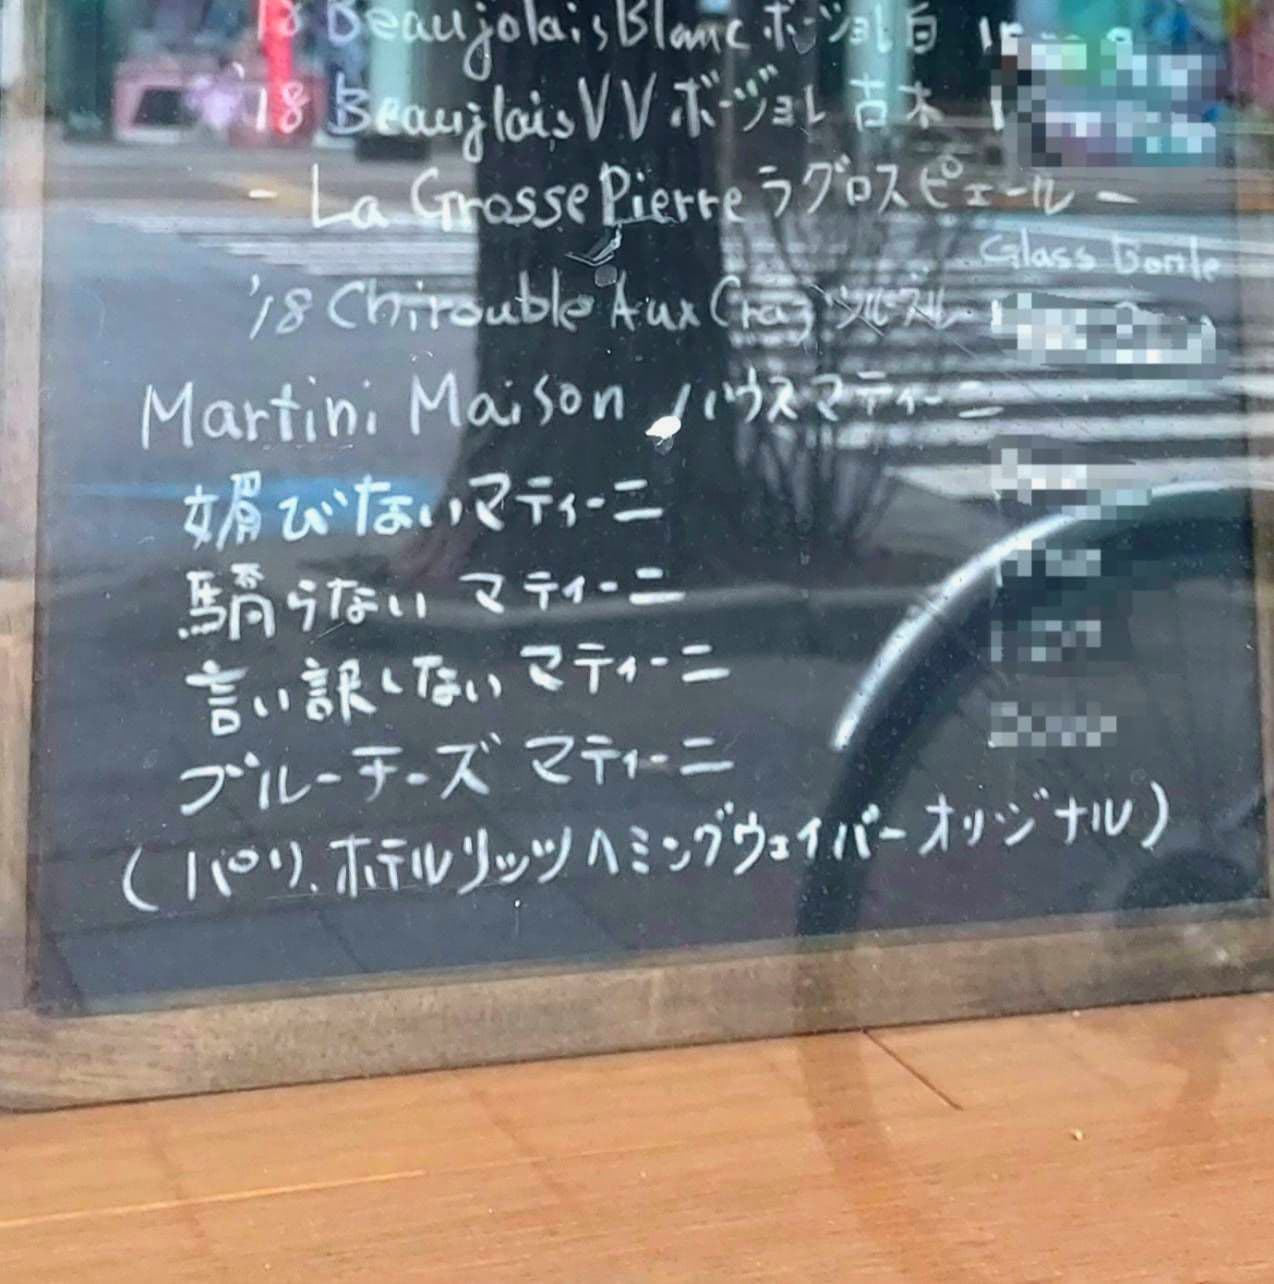 '18 Beaujolais Blanc ボージョレ白
'18 Beaujlais VV ボージョレ 古木
- La Grosse Pierre ラグロスピエール -
Glass
'18 Chirouble Aux Craz
Martini Maison ハウスマティーニ
媚びないマティーニ
驕らない マティーニ
言い訳しない マティーニ
ブルーチーズ マティーニ
(パリ、ホテルリッツヘミングウェイバーオリジナル)